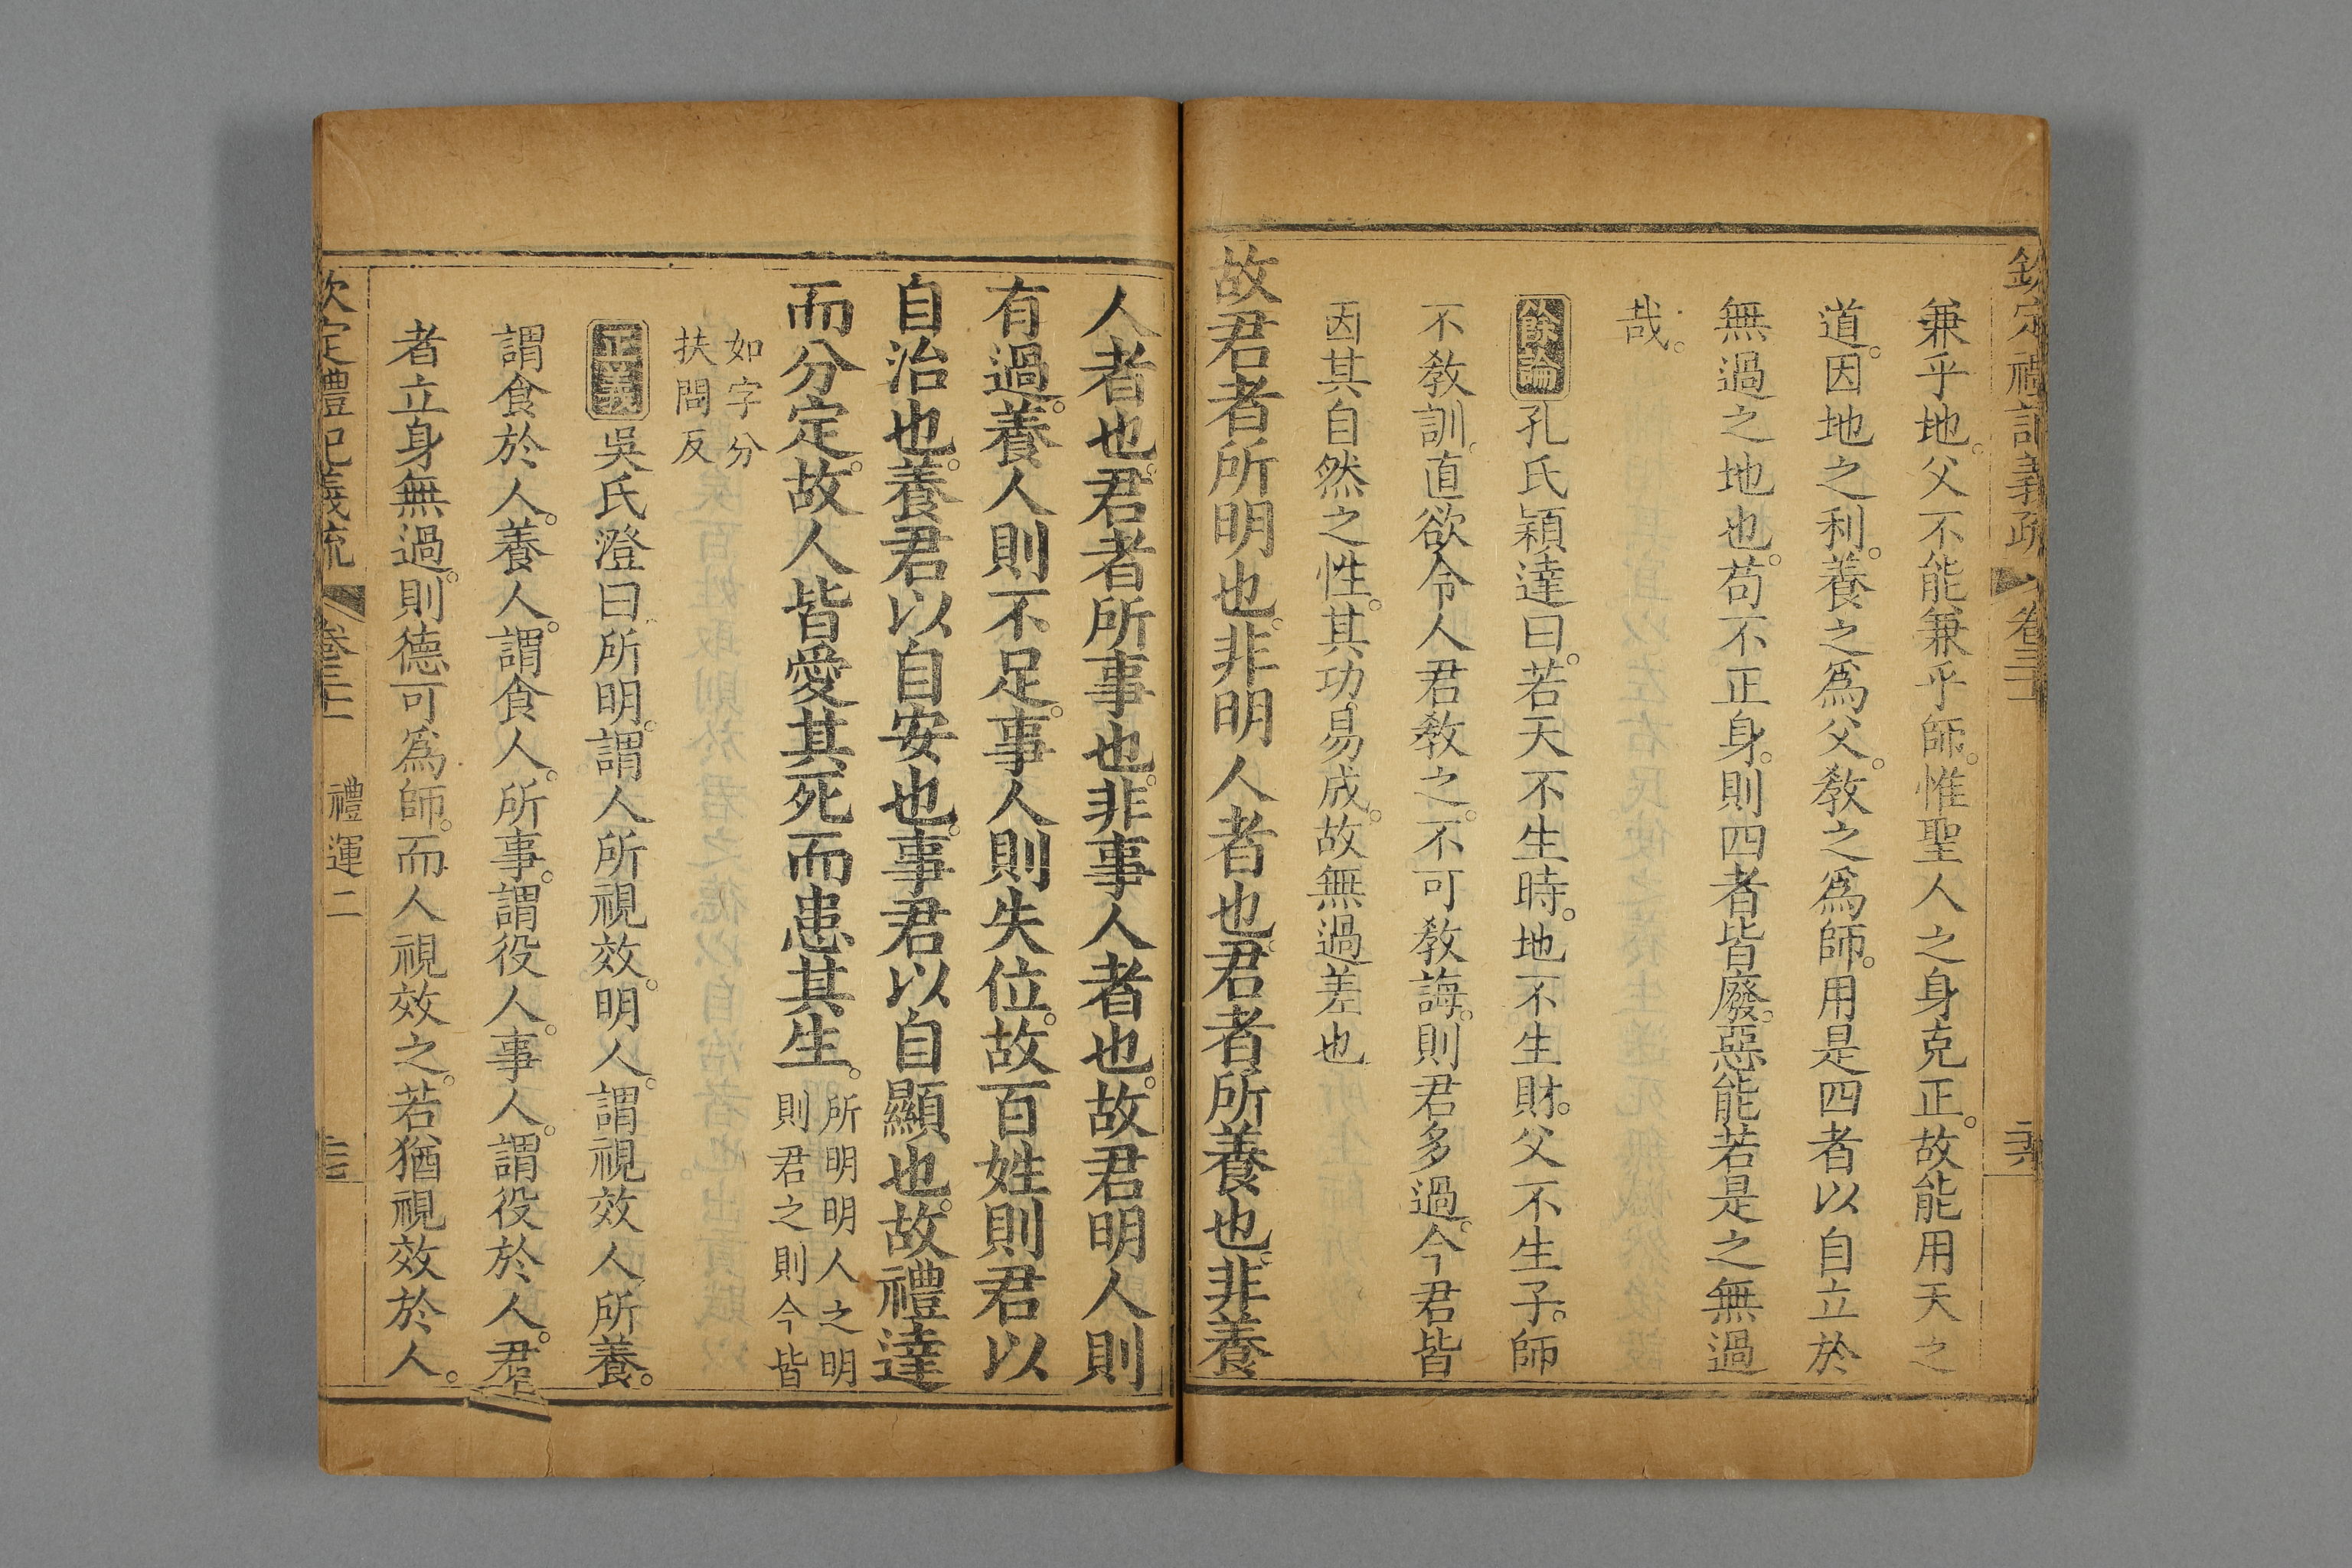 欽定禮記義疏 卷三十 二六
兼乎地。父不能兼乎師。惟聖人之身克正。故能用天之
道。因地之利。養之爲父。敎之爲師。用是四者以自立於
無過之地也。苟不正身。則四者皆廢。惡能若是之無過
哉。
餘論 孔氏穎達曰。若天不生時。地不生財。父不生子。師
不敎訓。直欲令人君敎之。不可敎誨。則君多過。今君皆
因其自然之性。其功易成。故無過差也
故君者所明也。非明人者也。君者所養也。非養
人者也。君者所事也。非事人者也。故君明人則
有過。養人則不足。事人則失位。故百姓則君以
自治也。養君以自安也。事君以自顯也。故禮達
而分定。故人皆愛其死而患其生。
所明明人之明
則君之則今皆
如字分
扶問反
正義 吳氏澄曰。所明。謂人所視效。明人。謂視效人。所養。
謂食於人。養人。謂食人。所事。謂役人。事人。謂役於人。君
者立身無過。則德可爲師。而人視效之。若猶視效於人。
欽定禮記義疏 卷三十 禮運二